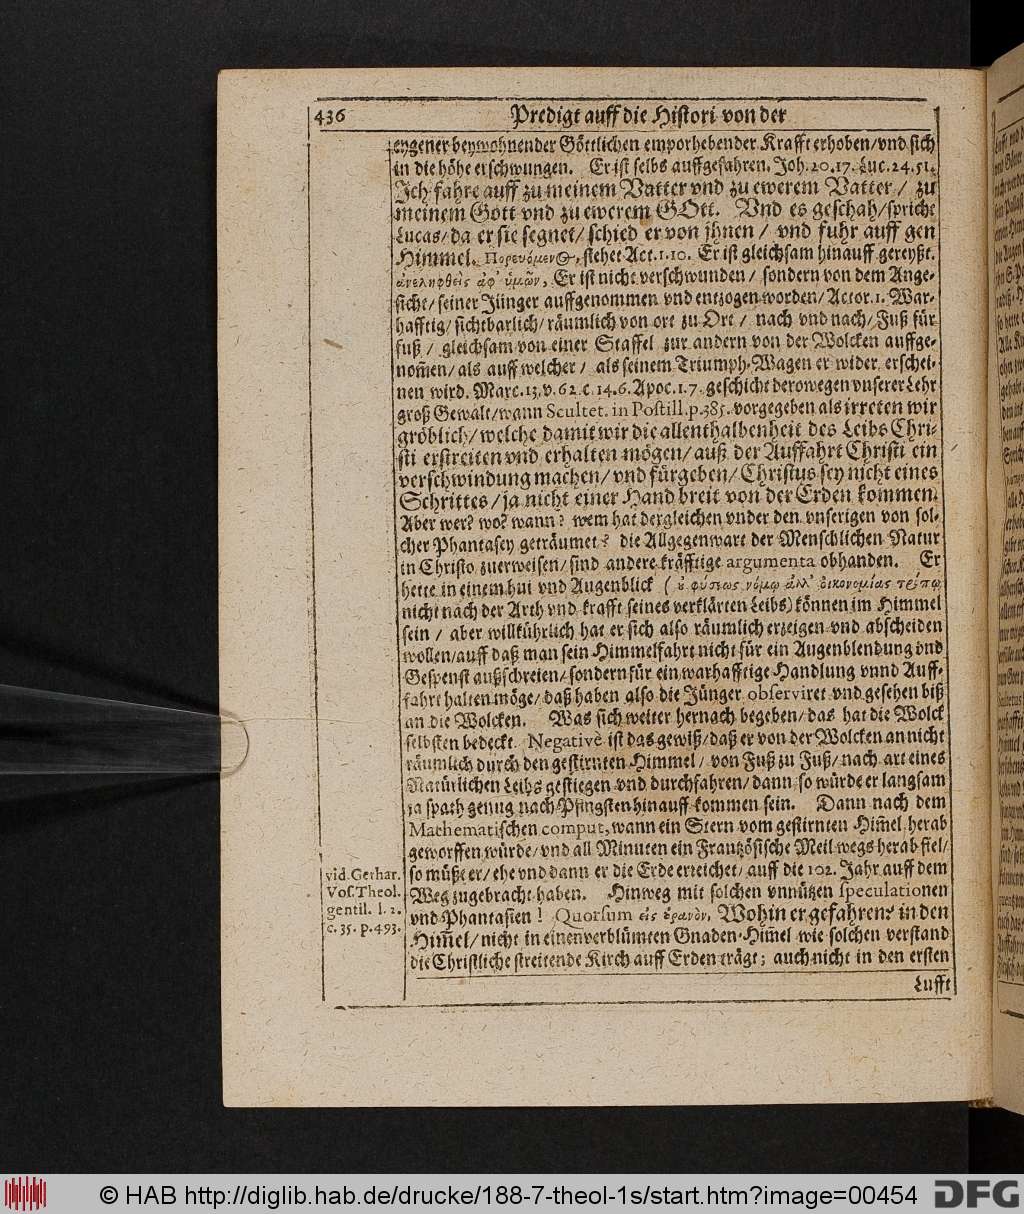 436 Predigt auff die Histori von der
eygener beywohnender Göttlichen emporhebender Krafft erhoben/ vnd sich
in die höhe erschwungen. Er ist selbs auffgefahren. Joh. 20. 17. Luc. 24. 51.
Ich fahre auff zu meinem Vatter vnd zu ewerem Vatter / zu
meinem Gott vnd zu ewerem GOtt. Vnd es geschah/ spricht
Lucas/ da er sie segnet/ schied er von jhnen / vnd fuhr auff gen
Himmel. Πορευόμεν, stehet Act. 1. 10. Er ist gleichsam hinauff gereyßt.
ἀνεληφθεὶς ἀφ' ὑμῶν, Er ist nicht verschwunden / sondern von dem Ange-
sicht/ seiner Jünger auffgenommen vnd entzogen worden/ Actor. 1. War-
hafftig/ sichtbarlich/ räumlich von ort zu Ort / nach vnd nach/ Fuß für
fuß / gleichsam von einer Staffel zur andern von der Wolcken auffge-
nom̄en/ als auff welcher / als seinem Triumph-Wagen er wider erschei-
nen wird. Marc. 13. v. 62. c. 14. 6. Apoc. 1. 7. geschicht derowegen vnserer Lehr
groß Gewalt/ wann Scultet. in Postill. p. 385. vorgegeben als irreten wir
gröblich/ welche damit wir die allenthalbenheit des Leibs Chri-
sti erstreiten vnd erhalten mögen/ auß der Auffahrt Christi ein
verschwindung machen/ vnd fürgeben/ Christus sey nicht eines
Schrittes/ ja nicht einer Hand breit von der Erden kommen.
Aber wer? wo? wann? wem hat dergleichen vnder den vnserigen von sol-
cher Phantasey geträumet? die Allgegenwart der Menschlichen Natur
in Christo zuerweisen/ sind andere kräfftige argumenta obhanden. Er
hette in einem hui vnd Augenblick ( ὀ φύσεως νόμῳ ἀλλ' οἰκονομίας τρόπῳ
nicht nach der Arth vnd krafft seines verklärten Leibs) können im Himmel
sein / aber willkührlich hat er sich also räumlich erzeigen vnd abscheiden
wollen/ auff daß man sein Himmelfahrt nicht für ein Augenblendung vnd
Gespenst außschreien/ sondern für ein warhafftige Handlung vnnd Auff-
fahrt halten möge/ daß haben also die Jünger observiret vnd gesehen biß
an die Wolcken. Was sich weiter hernach begeben/ das hat die Wolck
selbsten bedeckt. Negativè ist das gewiß/ daß er von der Wolcken an nicht
räumlich durch den gestirnten Himmel / von Fuß zu Fuß/ nach art eines
Natürlichen Leibs gestiegen vnd durchfahren/ dann so würde er langsam
ja spath genug nach Pfingsten hinauff kommen sein. Dann nach dem
Mathematischen comput, wann ein Stern vom gestirnten Him̄el herab
geworffen würde/ vnd all Minuten ein Frantzösische Meil wegs herab fiel/
so müßt er/ ehe vnd dann er die Erde erreichet/ auff die 102. Jahr auff dem
Weg zugebracht haben. Hinweg mit solchen vnnützen speculationen
vnd Phantasien! Quorsum εἰς ὀρανὸν, Wohin er gefahren? in den
Him̄el/ nicht in einen verblümten Gnaden-Him̄el wie solchen verstand
die Christliche streitende Kirch auff Erden trägt; auch nicht in den ersten
Lufft
vid. Gerhar.
Vos. Theol.
gentil. l. 2.
c. 35. p. 493.
© HAB http://diglib.hab.de/drucke/188-7-theol-1s/start.htm?image=00454
DFG